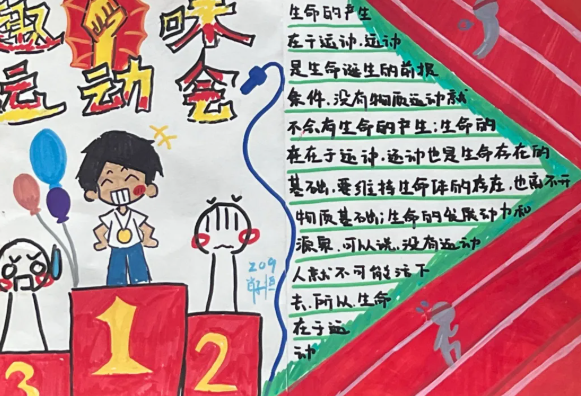 趣味
运动会
生命的产生
在于运动.运动
是生命诞生的前提
条件.没有物质运动就
不会有生命的产生;生命的
存在于运动.运动也是生命存在的
基础,要维持生命体的存在,也离不开
物质基础;生命的发展动力和
源泉.可以说.没有运动
人就不可能活下
去.所以生命
在于运
动
209
1
2
3